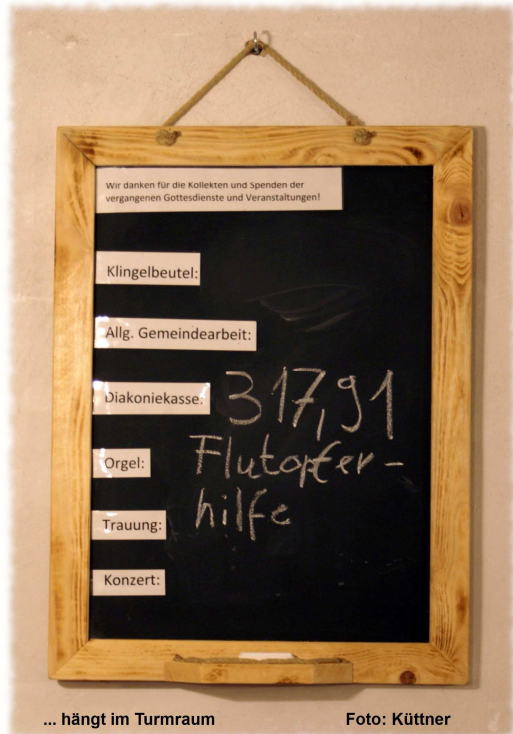 Wir danken für die Kollekten und Spenden der
vergangenen Gottesdienste und Veranstaltungen!
Klingelbeutel:
Allg. Gemeindearbeit:
Diakoniekasse: 317,91
Flutopfer-
Orgel:
hilfe
Trauung:
Konzert:
... hängt im Turmraum Foto: Küttner